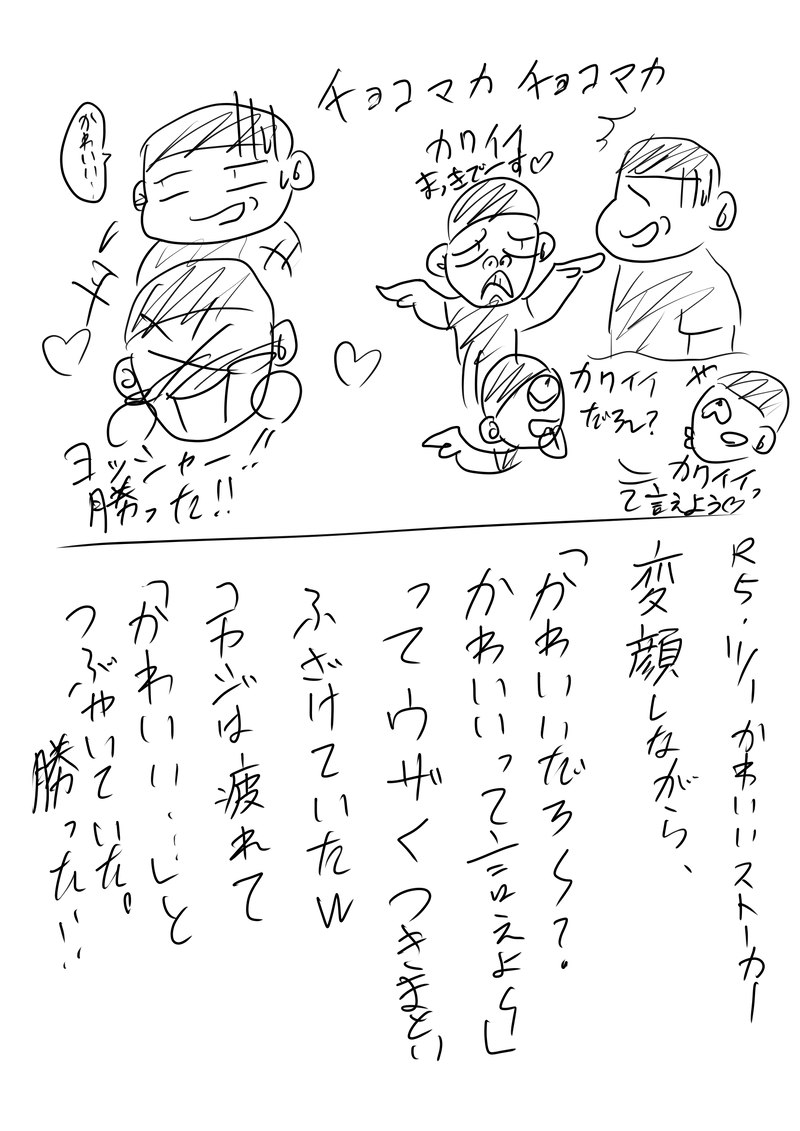 チョコマカ チョコマカ
カワイイ
まっきでーす♡
かわいい…
カワイイ
だろ〜?
カワイイっ
て言えよぅ♡
ヨッシャー!!
勝った!!
R5.ツリーかわいいストーカー
変顔しながら、
「かわいいだろ〜?.
かわいいって言えよ〜」
ってウザくつきまとい
ふざけていたw
コヤジは疲れて
「かわいい…」と
つぶやいていた。
勝った!!